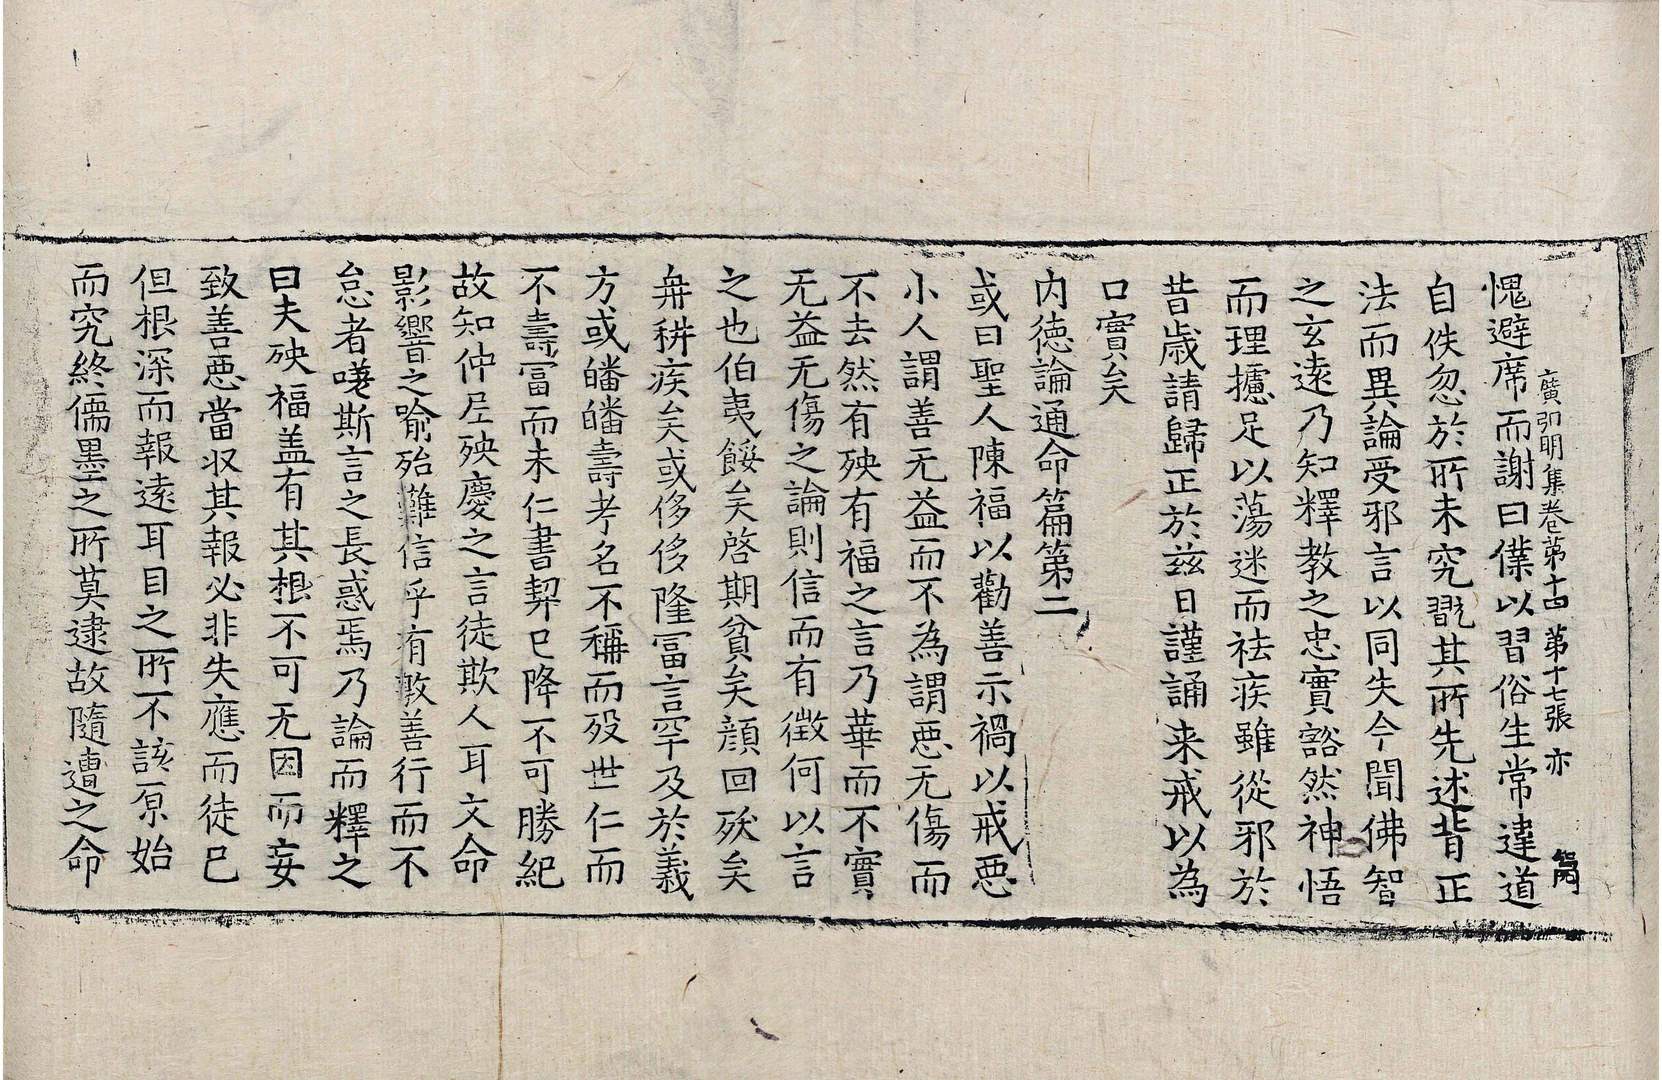 愧避席而謝曰僕以習俗生常違道
廣弘明集卷第十四 第十七張 亦
自佚忽於所未究翫其所先述背正
法而異論受邪言以同失今聞佛智
之玄遠乃知釋教之忠實豁然神悟
而理攄足以蕩迷而祛疾雖從邪於
昔歲請歸正於兹日謹誦来戒以為
口實矣
内德論通命篇第二
或曰聖人陳福以勸善示禍以戒惡
小人謂善无益而不為謂惡无傷而
不去然有殃有福之言乃華而不實
无益无傷之論則信而有徵何以言
之也伯夷餒矣啓期貧矣顔回殀矣
冉耕疾矣或侈侈隆冨言罕及於義
方或皤皤壽考名不稱而殁世仁而
不壽冨而未仁書契已降不可勝紀
故知仲尼殃慶之言徒欺人耳文命
影響之喻殆難信乎有敦善行而不
怠者嘆斯言之長惑焉乃論而釋之
曰夫殃福盖有其根不可无因而妄
致善惡當収其報必非失應而徒已
但根深而報遠耳目之所不該原始
而究終儒墨之所莫逮故隨遭之命